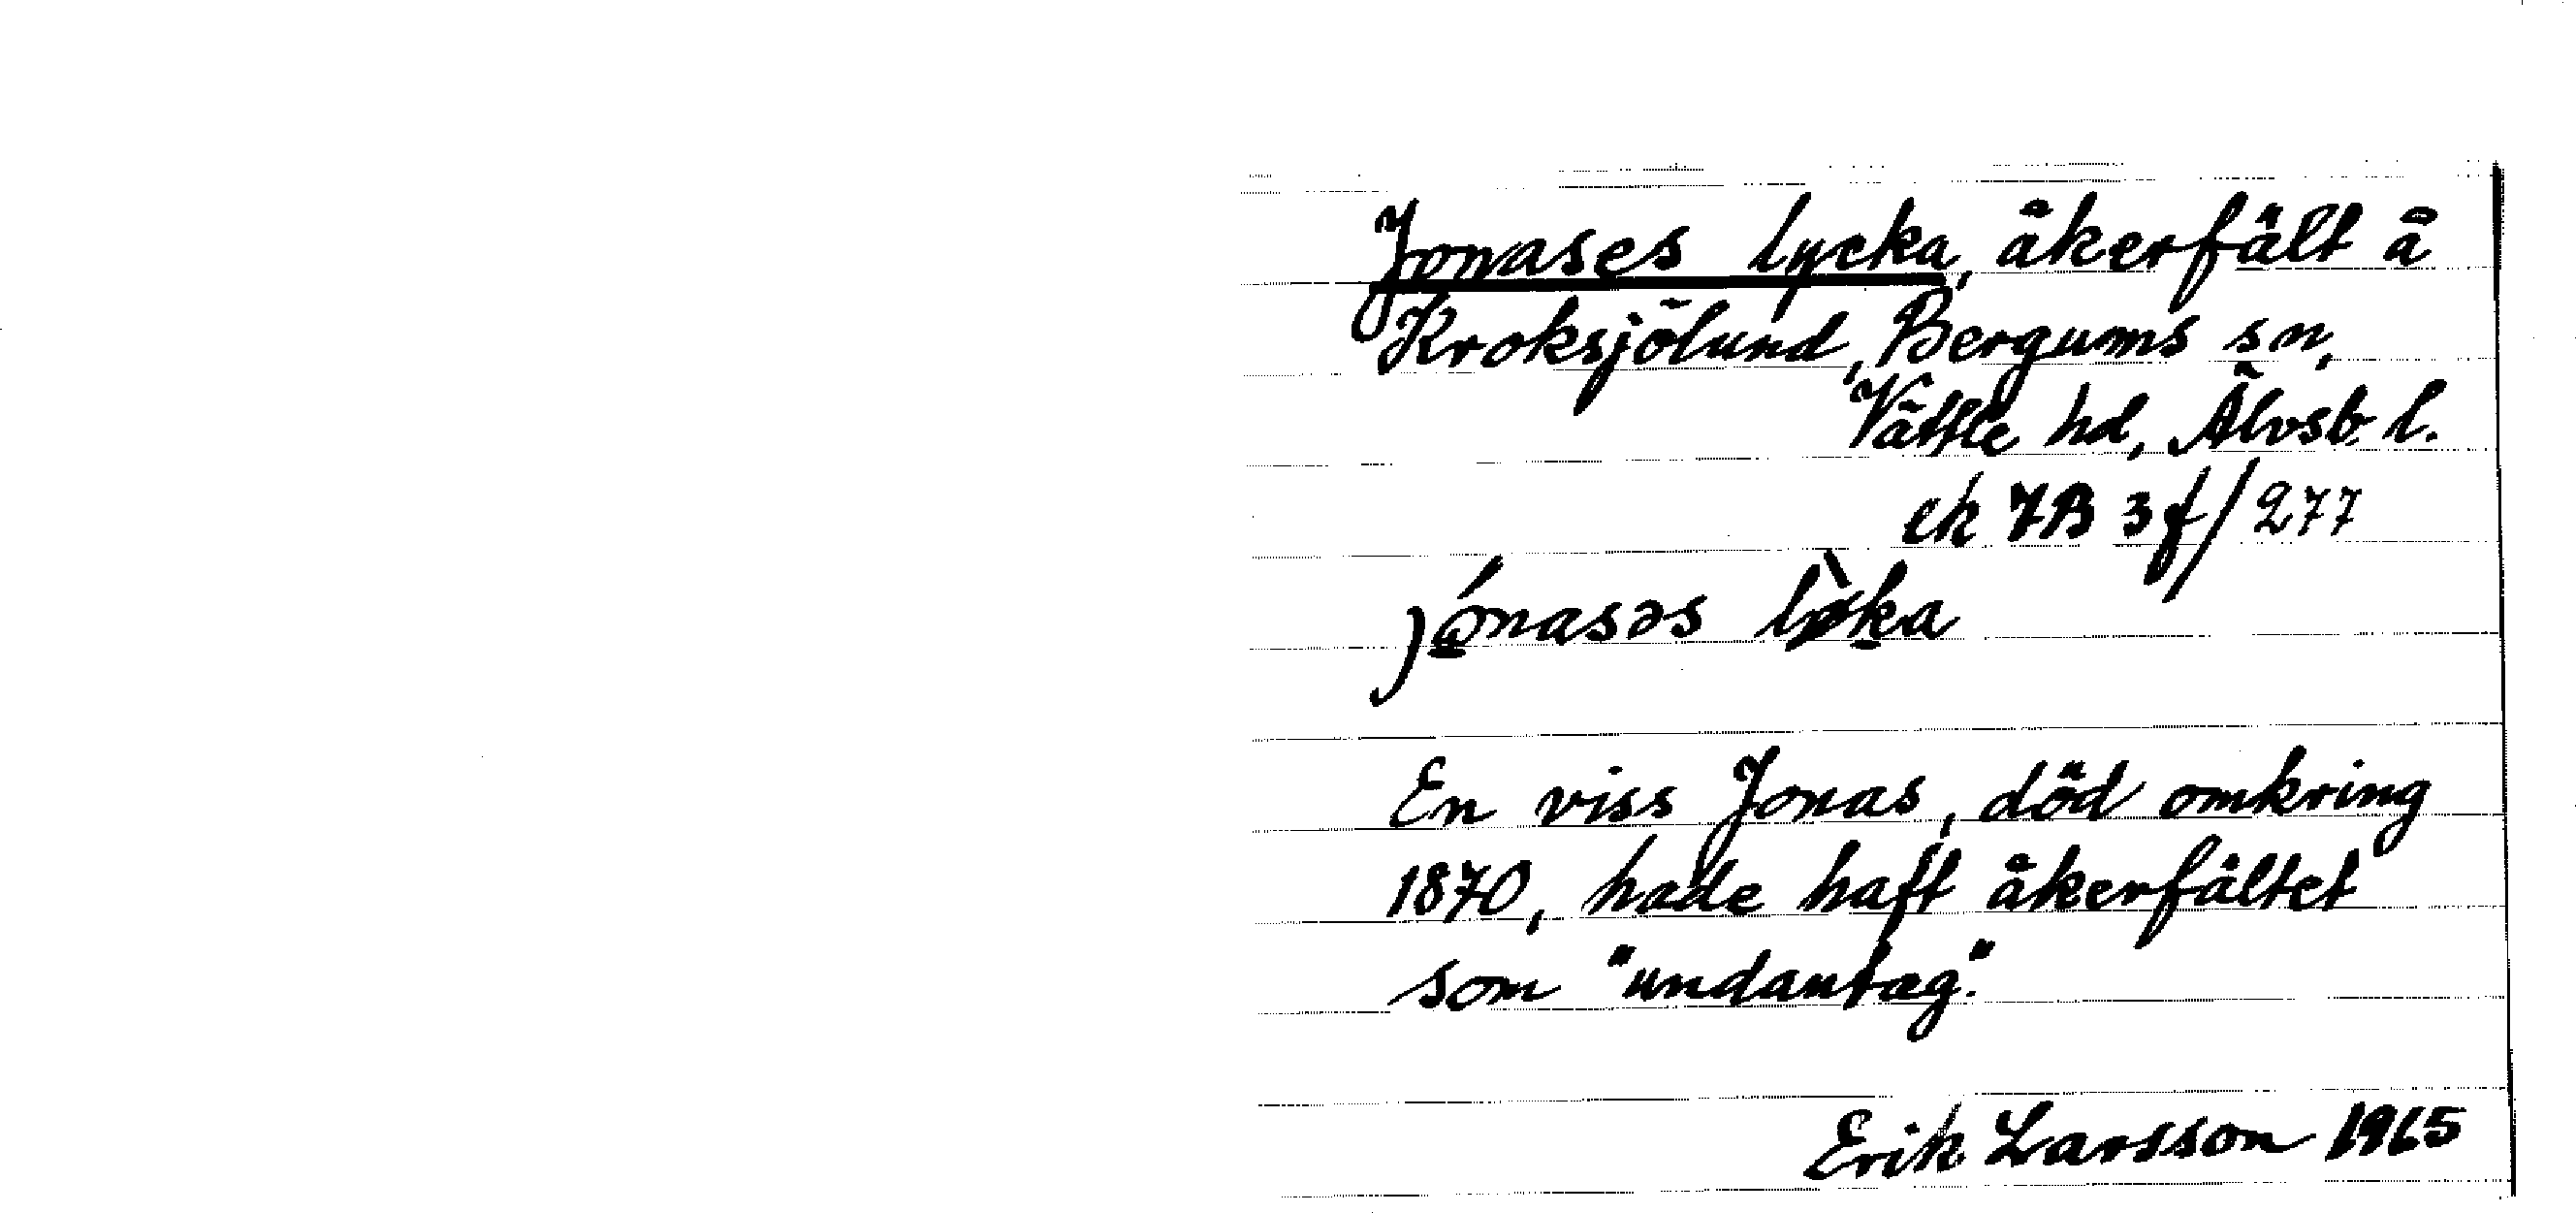 Jonases lycka, åkerfält å
Kroksjölund, Bergums sn,
Vättle hd, Älvsb. l.
ek 7B 3f/277
jónasəs lø̀ka
En viss Jonas, död omkring
1870, hade haft åkerfältet
som "undantag".
Erik Larsson 1965